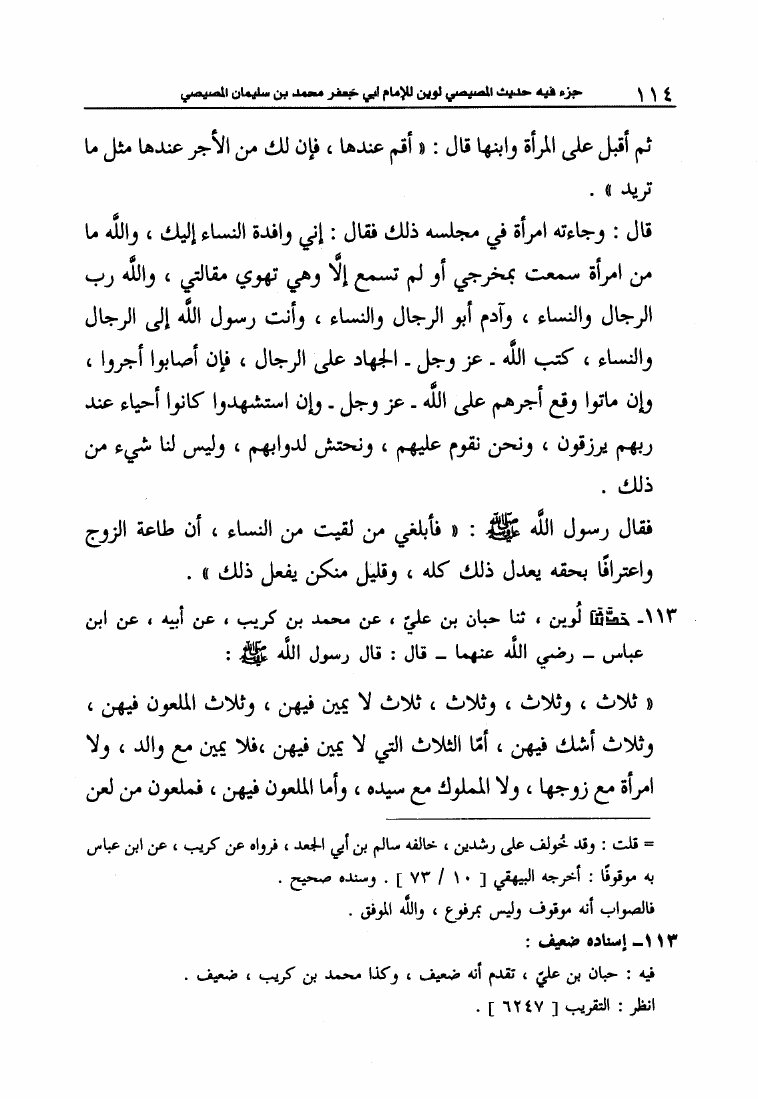 ١١٤ جزء فيه حديث المصيصي لوين للإمام ابي جعفر محمد بن سليمان المصيصي
ثم أقبل على المرأة وابنها قال : « أقم عندها ، فإن لك من الأجر عندها مثل ما
تريد » .
قال : وجاءته امرأة في مجلسه ذلك فقال : إني وافدة النساء إليك ، واللَّه ما
من امرأة سمعت بمخرجي أو لم تسمع إلَّا وهي تهوي مقالتي ، واللَّه رب
الرجال والنساء ، وآدم أبو الرجال والنساء ، وأنت رسول اللَّه إلى الرجال
والنساء ، كتب اللَّه ـ عز وجل ـ الجهاد على الرجال ، فإن أصابوا أجروا ،
وإن ماتوا وقع أجرهم على اللَّه ـ عز وجل ـ وإن استشهدوا كانوا أحياء عند
ربهم يرزقون ، ونحن نقوم عليهم ، ونحتش لدوابهم ، وليس لنا شيء من
ذلك .
فقال رسول اللَّه ﷺ : « فأبلغي من لقيت من النساء ، أن طاعة الزوج
واعترافًا بحقه يعدل ذلك كله ، وقليل منكن يفعل ذلك » .
١١٣ـ حَدَّثَنَا لُوين ، ثنا حبان بن عليّ ، عن محمد بن كريب ، عن أبيه ، عن ابن
عباس – رضي اللَّه عنهما – قال : قال رسول اللَّه ﷺ :
« ثلاث ، وثلاث ، وثلاث ، ثلاث لا يمين فيهن ، وثلاث الملعون فيهن ،
وثلاث أشك فيهن ، أمّا الثلاث التي لا يمين فيهن ،فلا يمين مع والد ، ولا
امرأة مع زوجها ، ولا المملوك مع سيده ، وأما الملعون فيهن ، فملعون من لعن
= قلت : وقد خُولف على رشدين ، خالفه سالم بن أبي الجعد ، فرواه عن كريب ، عن ابن عباس
به موقوفًا : أخرجه البيهقي [ ١٠ / ٧٣ ] . وسنده صحيح .
فالصواب أنه موقوف وليس بمرفوع ، واللَّه الموفق .
١١٣ـ إسناده ضعيف :
فيه : حبان بن عليّ ، تقدم أنه ضعيف ، وكذا محمد بن كريب ، ضعيف .
انظر : التقريب [ ٦٢٤٧ ] .